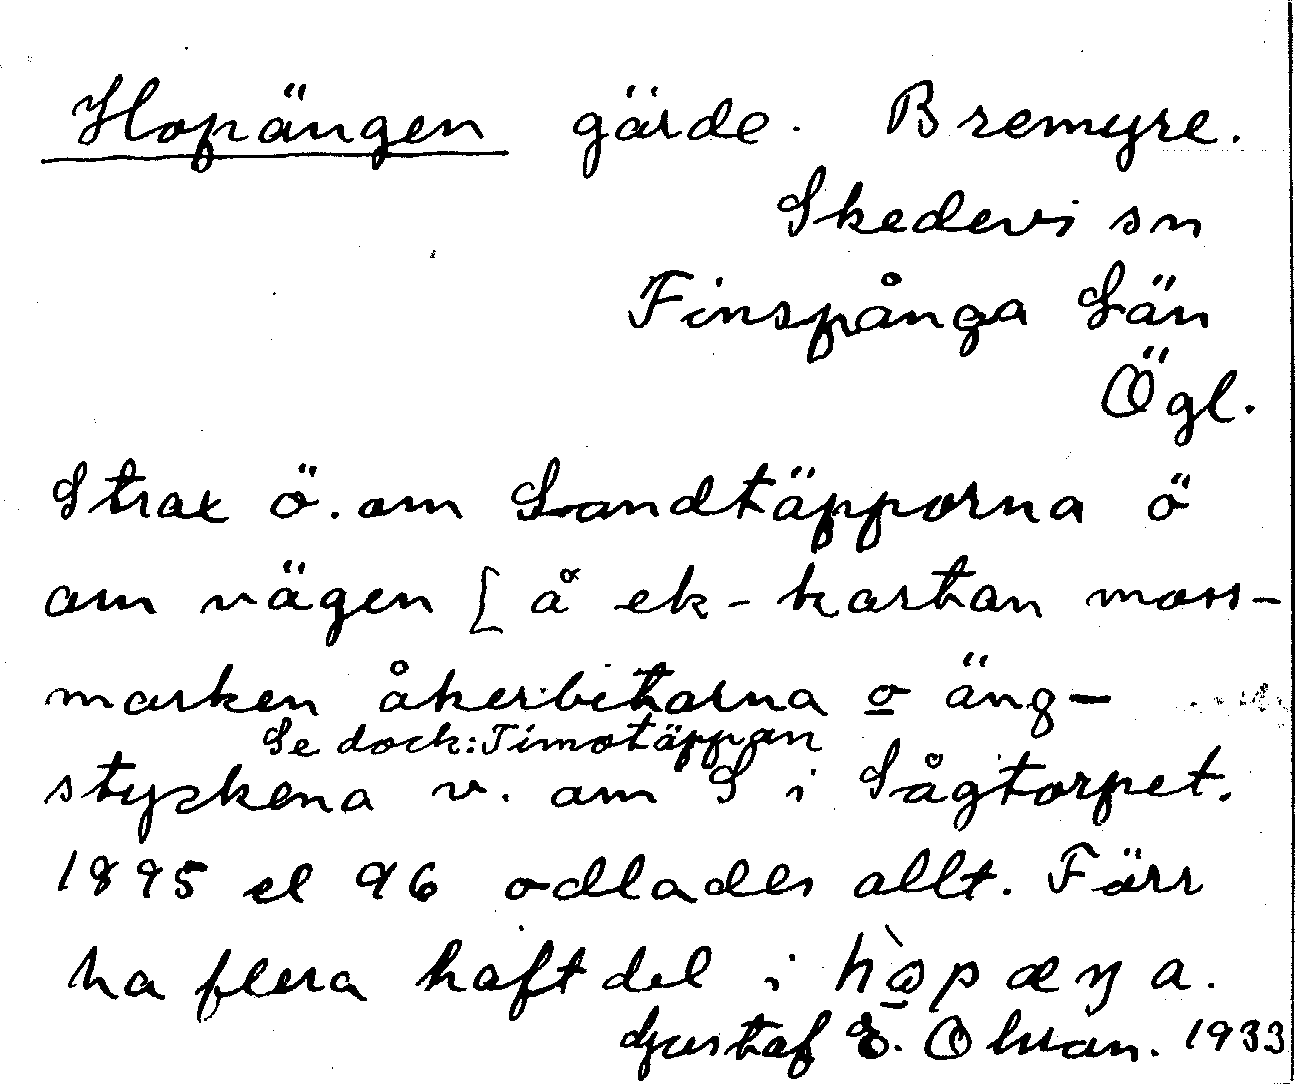 Hopängen gärde. Bremyre.
Skedevi sn
Finspånga Län
Ögl.
Strax ö. om Sandtäpporna ö
om vägen [ å ek-kartan moss-
marken åkerbitarna o äng-
Se dock: Timotäppan
styckena v. om S i Sågtorpet.
1895 el 96 odlades allt. Förr
ha flera haft del i hòpæŋa.
Gustaf E. Olsson. 1933